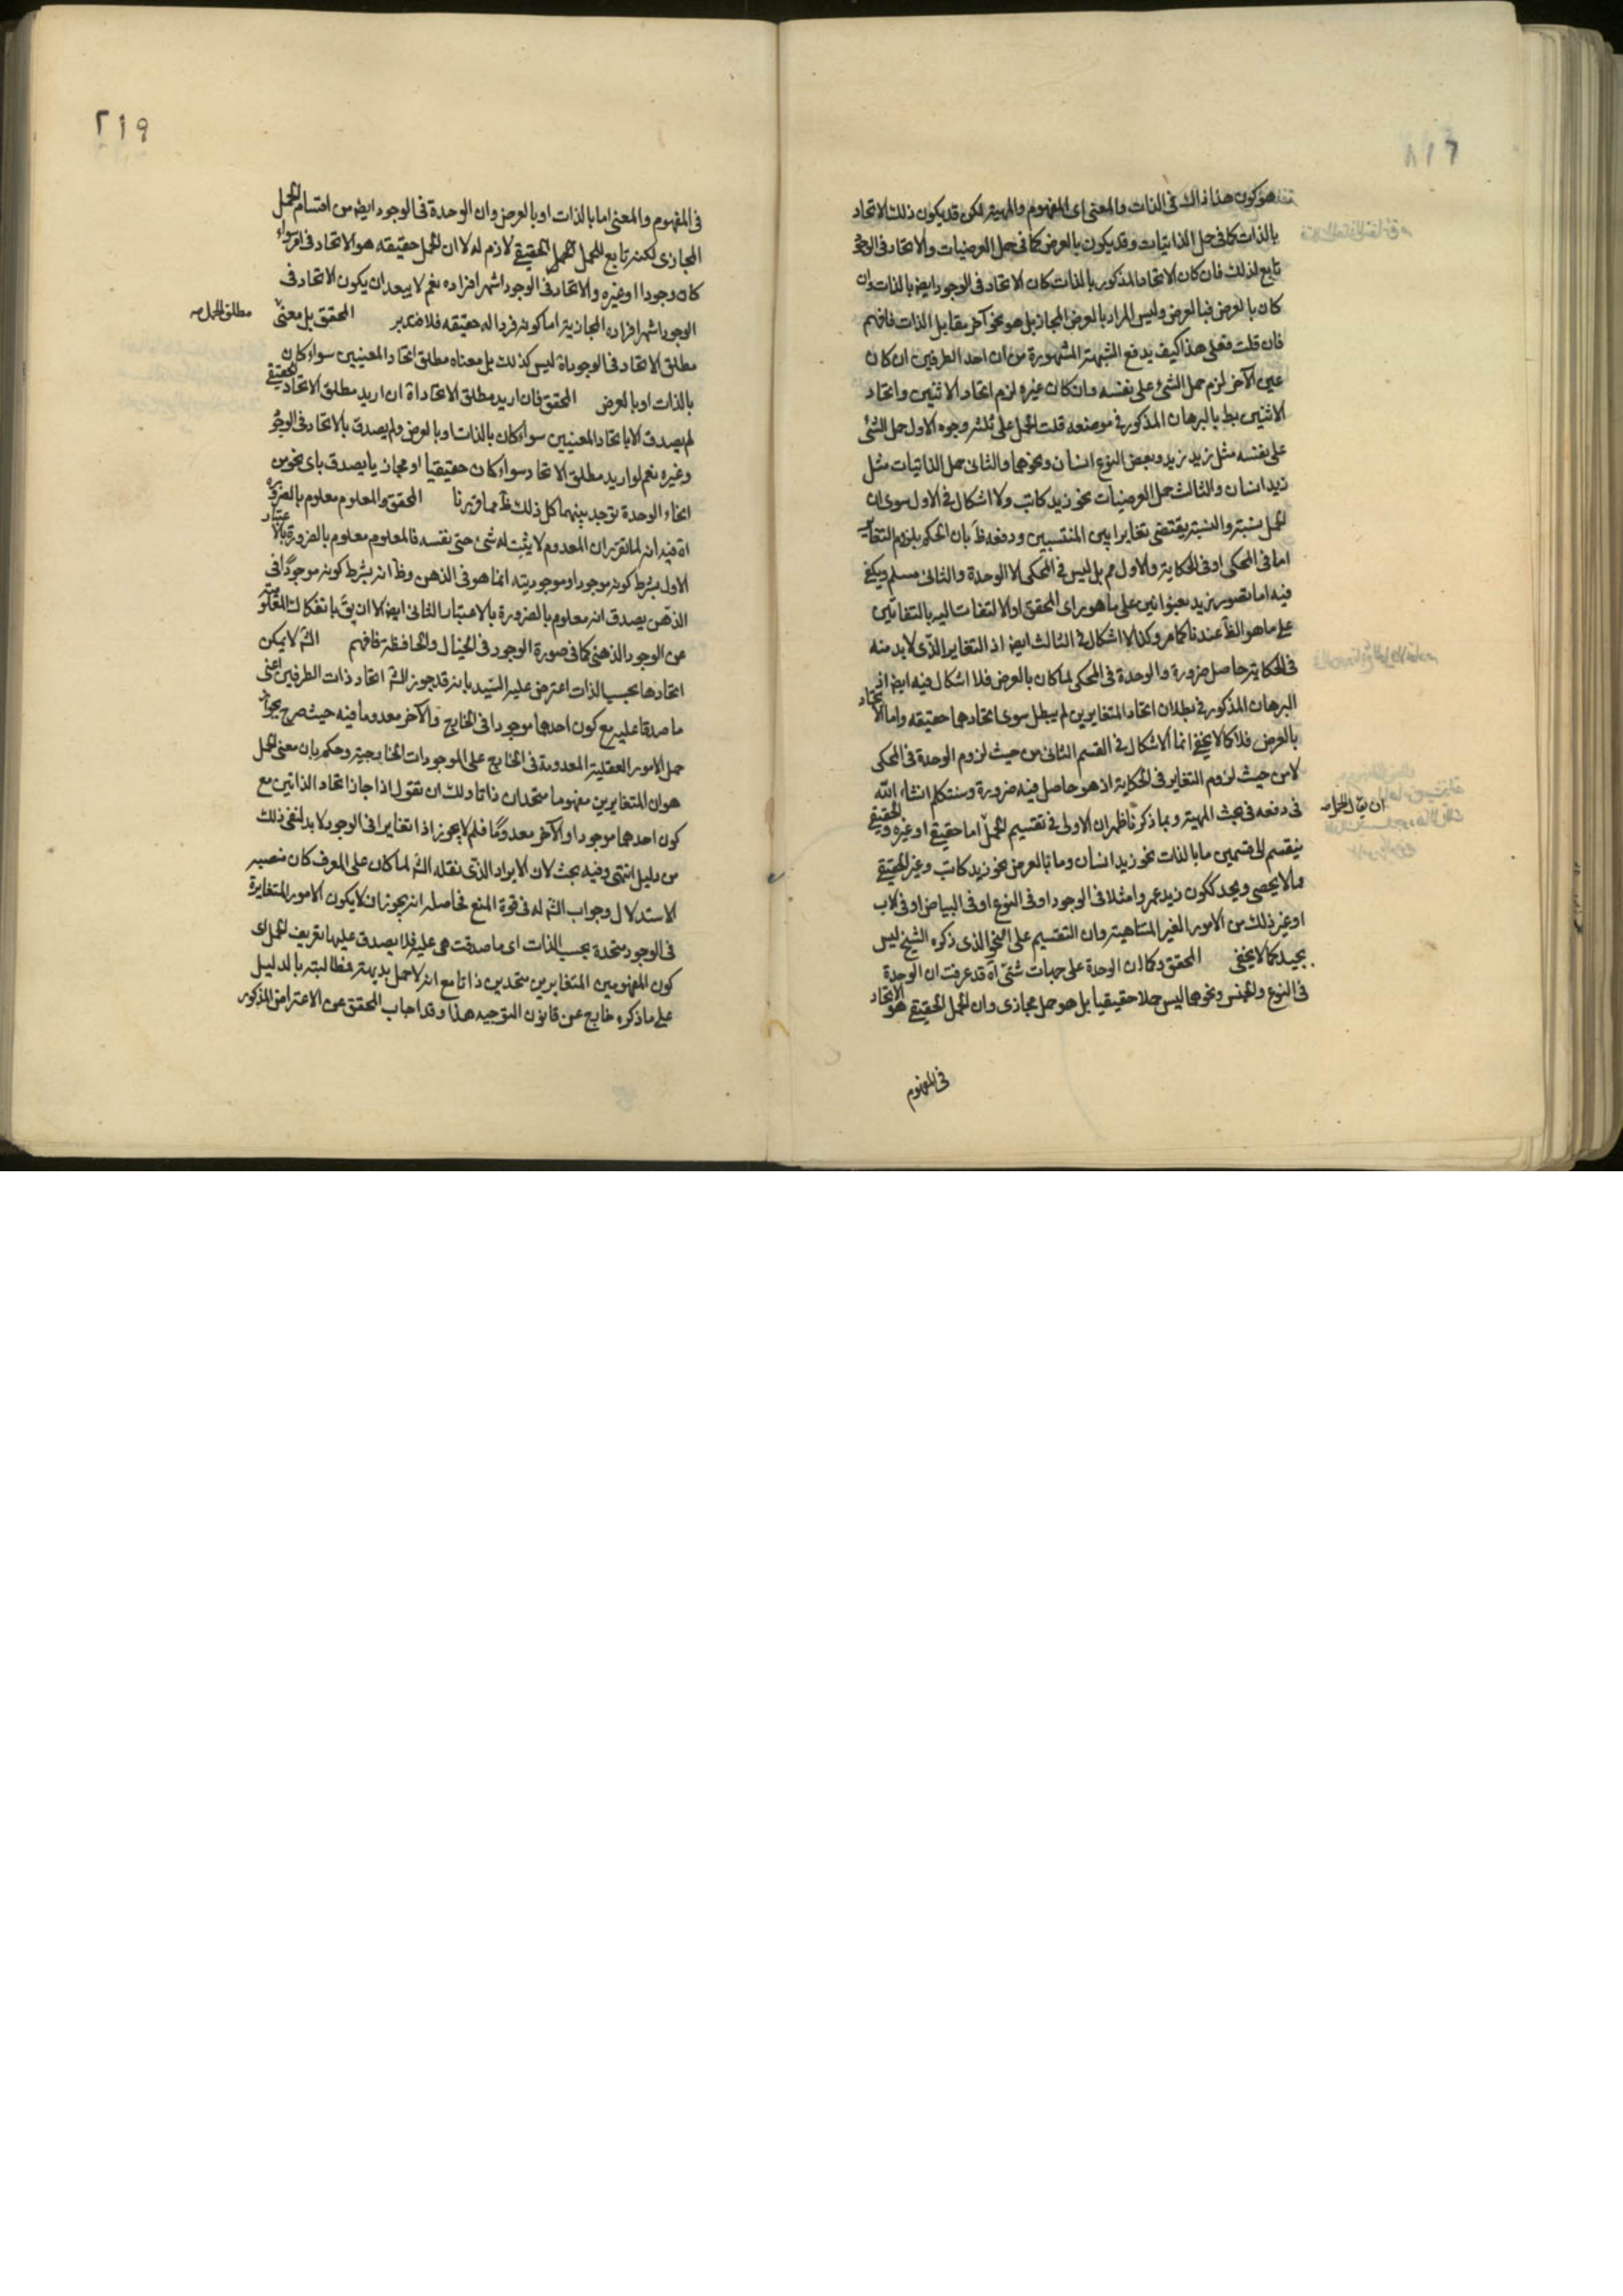 ٢١٨
هو كون هذا ذاك فى الذات والمعنى اى المفهوم والمهية لكن قد يكون ذلك الاتحاد
بالذات كما فى حمل الذاتيات وقد يكون بالعرض كما فى حمل العرضيات والاتحاد فى الوجود
تابع لذلك فان كان الاتحاد المذكور بالذات كان الاتحاد فى الوجود ايض بالذات وان
كان بالعرض فبالعرض وليس المراد بالعرض المجاز بل هو نحو آخر مقابل الذات فافهم
فان قلت فعلى هذا كيف يدفع الشبهة المشهورة من ان احد الطرفين ان كان
عين الآخر لزم حمل الشئ على نفسه وان كان غيره لزم اتحاد الاثنين واتحاد
الاثنين بط بالبرهان المذكور فى موضعه قلت الحمل على ثلثه وجوه الاول حمل الشئ
على نفسه مثل زيد زيد وبعض النوع انسان ونحوهما والثانى حمل الذاتيات مثل
زيد انسان والثالث حمل العرضيات نحو زيد كاتب ولا اشكال فى الاول سوى ان
الحمل نسبة والنسبة يقتضى تغايرا بين المنتسبين ودفعه ظ بان الحكم بلزوم التغاير
اما فى المحكى او فى الحكاية والاول مم بل ليس فى المحكى الا الوحدة والثانى مسلم ويكفى
فيه اما تصور زيد بعنوانين على ما هو راى المحقق او الالتفات اليه بالتفاتين
على ما هو الظ عندنا كما مر وكذا لا اشكال فى الثالث ايض اذ التغاير الذى لا بد منه
فى الحكاية حاصل ضرورة والوحدة فى المحكى لما كان بالعرض فلا اشكال فيه ايض اذ
البرهان المذكور فى بطلان اتحاد المتغايرين لم يبطل سوى اتحادهما حقيقه واما الاتحاد
بالعرض فلا كما لا يخفى انما الاشكال فى القسم الثانى من حيث لزوم الوحدة فى المحكى
لا من حيث لزوم التغاير فى الحكاية اذ هو حاصل فيه ضرورة وسنتكلم انشاء الله
فى دفعه فى بحث المهية وبما ذكرنا ظهر ان الاولى فى تقسيم الحمل اما حقيقى او غيره والحقيقى
ان يقال الحمل صه
ينقسم الى قسمين ما بالذات نحو زيد انسان وما بالعرض نحو زيد كاتب وغير الحقيقى
مما لا يحصى ويحد ككون زيد عمرو امثلا فى الوجود او فى النوع او فى البياض او فى الاب
او غير ذلك من الامور الغير المتناهية وان التقسيم على النحو الذى ذكره الشيخ ليس
بجيد كما لا يخفى المحقق وكما ان الوحدة على جهات شتى آه قد عرفت ان الوحدة
فى النوع والجنس ونحوهما ليس حملا حقيقيا بل هو حمل مجازى وان الحمل الحقيقى هو الاتحاد
فى المفهوم
٢١٩
فى المفهوم والمعنى اما بالذات او بالعرض وان الوحدة فى الوجود ايض من اقسام الحمل
المجازى لكنه تابع للحمل الحقيقى لازم له لا ان الحمل حقيقه هو الاتحاد فى امر سواء
كان وجودا او غيره والاتحاد فى الوجود اشهر افراده نعم لا يبعد ان يكون الاتحاد فى
الوجود اشهر افراده المجازية اما كونه فردا له حقيقه فلا فتدبر المحقق بل معنى
مطلق الحمل صه
مطلق الاتحاد فى الوجود اه ليس كذلك بل معناه مطلق اتحاد المعنيين سواء كان
بالذات او بالعرض المحقق فان اريد مطلق الاتحاد اه ان اريد مطلق الاتحاد الحقيقى
لم يصدق الا باتحاد المعنيين سواء كان بالذات او بالعرض ولم يصدق بالاتحاد فى الوجود
وغيره نعم لو اريد مطلق الاتحاد سواء كان حقيقيا او مجازيا يصدق باى نحو من
انحاء الوحدة توجد بينهما كل ذلك ظ مما قررنا المحقق والمعلوم معلوم بالضرورة
اه فيه انه لما تقرر ان المعدوم لا يثبت له شئ حتى نفسه فالمعلوم معلوم بالضرورة بالاعتبار
الاول بشرط كونه موجودا وموجوديته انما هو فى الذهن وظ انه بشرط كونه موجودا فى
الذهن يصدق انه معلوم بالضرورة بالاعتبار الثانى ايض الا ان يق بانفكاك المعلومية
عن الوجود الذهنى كما فى صورة الوجود فى الخيال والحافظة فافهم الش لا يمكن
اتحادهما بحسب الذات اعترض عليه السيد بانه قد جوز الش اتحاد ذات الطرفين اعنى
ما صدقا عليه مع كون احدهما موجودا فى الخارج والآخر معدوما فيه حيث صرح بجواز
حمل الامور العقلية المعدومة فى الخارج على الموجودات الخارجية وحكم بان معنى الحمل
هو ان المتغايرين مفهوما متحدان ذاتا ولك ان تقول اذا جاز اتحاد الذاتين مع
كون احدهما موجودا والآخر معدوما فلم لا يجوز اذا تغايرا فى الوجود لا بد لنفى ذلك
من دليل انتهى وفيه بحث لان الايراد الذى نقله الش لما كان على المعرف كان منصبه
الاستدلال وجواب الش له فى قوة المنع فحاصله انه يجوز ان لا يكون الامور المتغايرة
فى الوجود متحدة بحسب الذات اى ما صدقت هى عليه فلا يصدق عليها تعريف الحمل اى
كون المفهومين المتغايرين متحدين ذاتا مع انه لا حمل بديهة فمطالبته بالدليل
على ما ذكره خارج عن قانون التوجيه هذا وقد اجاب المحقق عن الاعتراض المذكور